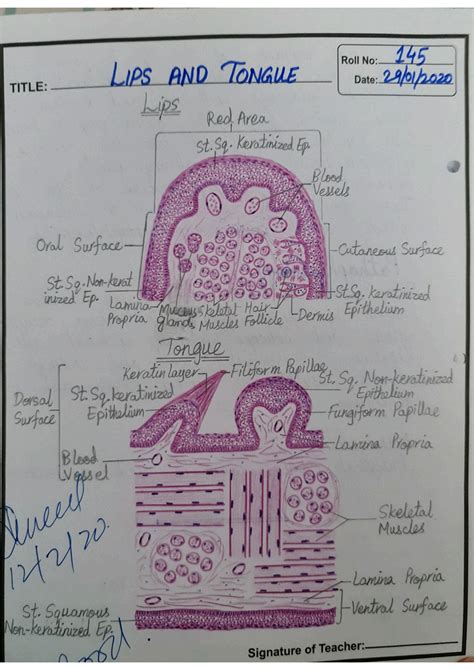 Roll No: 145
TITLE: LIPS AND TONGUE
Date: 29/01/2020
Lips
Red Area
St. Sq. Keratinized Ep.
Blood
Vessels
Oral Surface
Cutaneous Surface
St. Sq. Non-kerat
inized Ep.
Lamina
Propria
Mucous
Glands
Skeletal
Muscles
Hair
Follicle
Dermis
St. Sq. keratinized
Epithelium
Tongue
Keratin layer
Filiform Papillae
Dorsal
Surface
St. Sq. keratinized
Epithelium
St. Sq. Non-keratinized
Epithelium
Fungiform Papillae
Lamina Propria
Blood
Vessel
Skeletal
Muscles
12/2/20.
Lamina Propria
Ventral Surface
St. Squamous
Non-keratinized Ep.
Good.
Signature of Teacher: